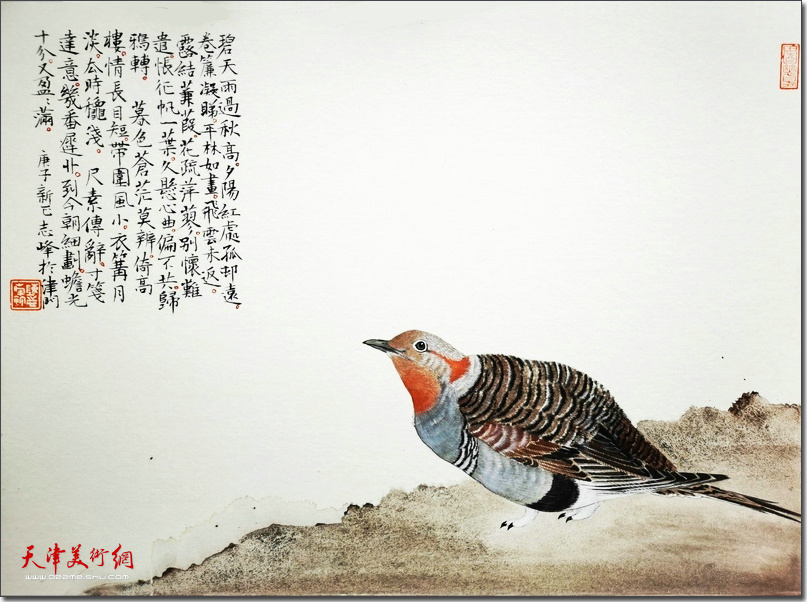 碧天雨過秋高。夕陽紅處孤邨遠。
卷簾凝睇。平林如畫。飛雲未返。
露結蒹葭。花疏萍蓼。別懷難
遣。悵征帆一葉。久懸心曲。偏不共歸
鴉轉。 暮色蒼茫莫辨。倚高
樓。情長目短。帶圍風小。衣篝月
淡。厺時穐淺。 尺素傳辭。寸箋
達意。幾番。到今朝細劃。蟾光
十分。又盈盈滿。 庚子新正志峰於津門
天津美術網